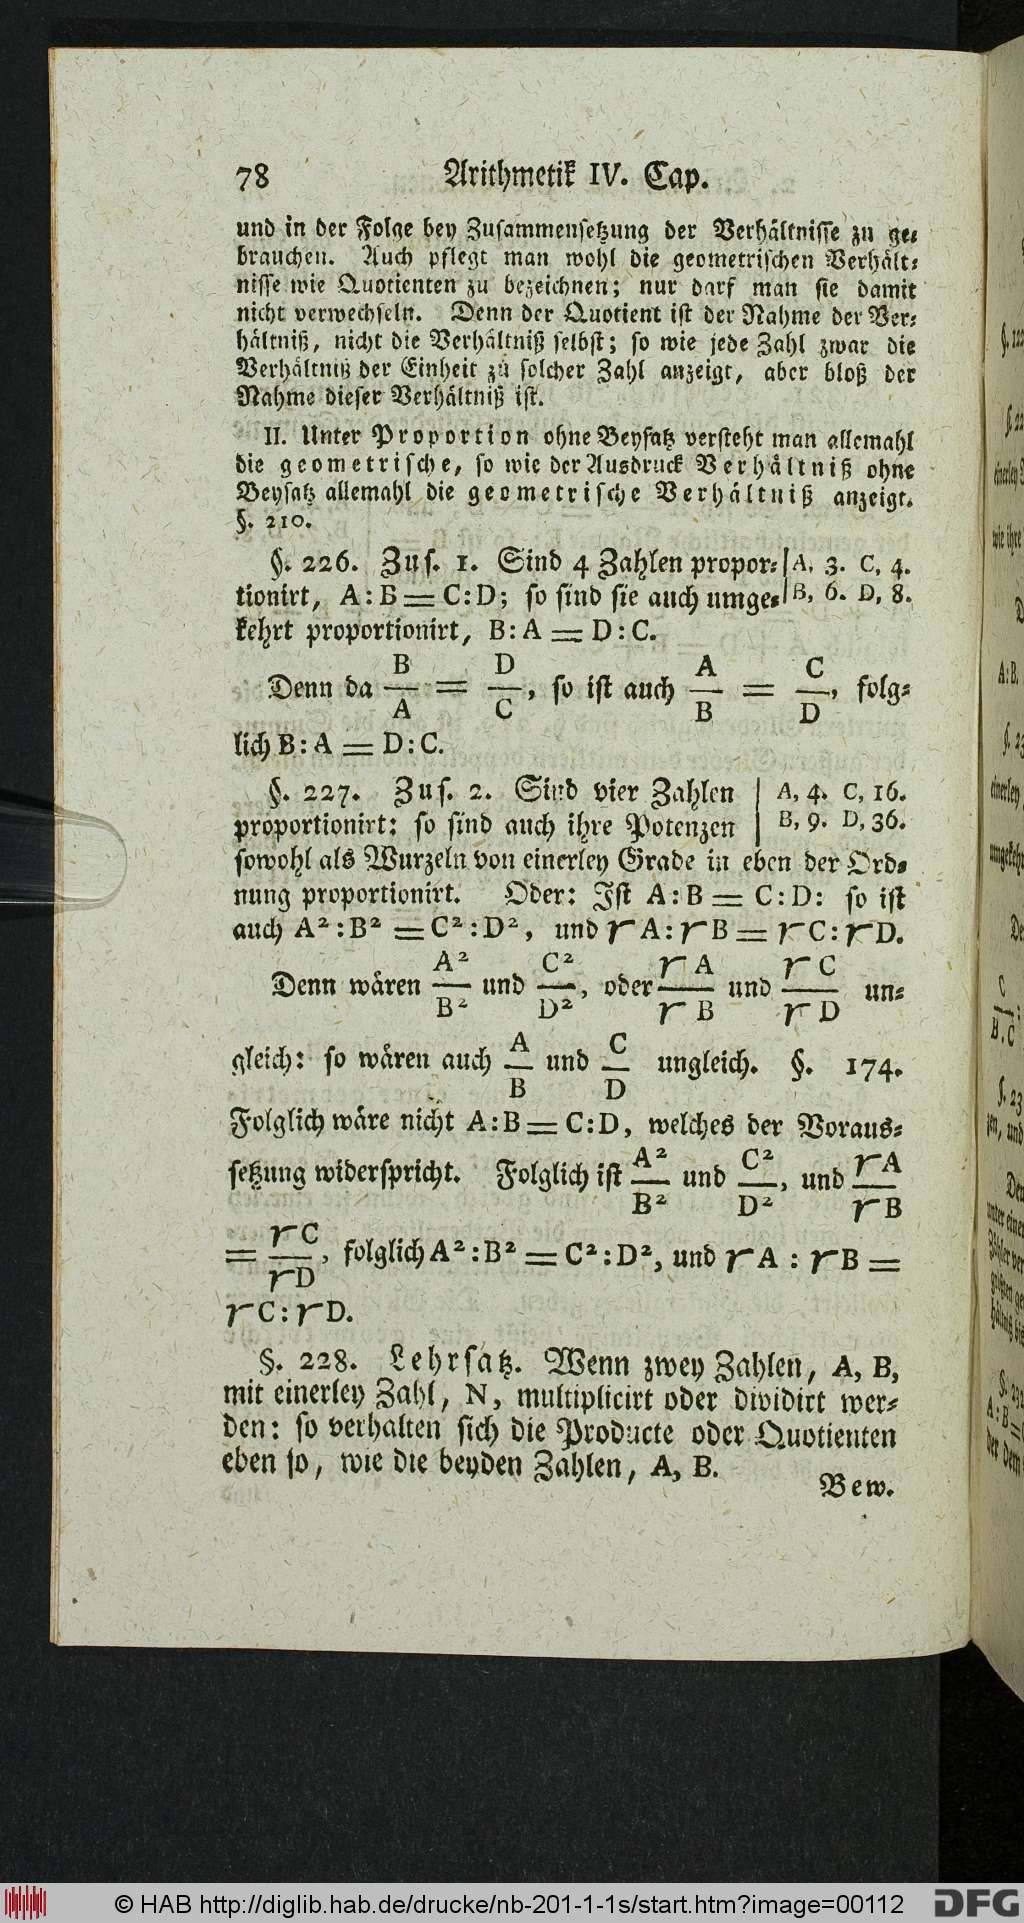 78 Arithmetik IV. Cap.
und in der Folge bey Zusammensetzung der Verhältnisse zu ge-
brauchen. Auch pflegt man wohl die geometrischen Verhält-
nisse wie Quotienten zu bezeichnen; nur darf man sie damit
nicht verwechseln. Denn der Quotient ist der Nahme der Ver-
hältniß, nicht die Verhältniß selbst; so wie jede Zahl zwar die
Verhältniß der Einheit zu solcher Zahl anzeigt, aber bloß der
Nahme dieser Verhältniß ist.
II. Unter Proportion ohne Beysatz versteht man allemahl
die geometrische, so wie der Ausdruck Verhältniß ohne
Beysatz allemahl die geometrische Verhältniß anzeigt.
§. 210.
§. 226. Zus. 1. Sind 4 Zahlen propor- | A, 3. C, 4.
tionirt, A : B = C : D; so sind sie auch umge- | B, 6. D, 8.
kehrt proportionirt, B : A = D : C.
Denn da B/A = D/C, so ist auch A/B = C/D, folg-
lich B : A = D : C.
§. 227. Zus. 2. Sind vier Zahlen | A, 4. C, 16.
proportionirt: so sind auch ihre Potenzen | B, 9. D, 36.
sowohl als Wurzeln von einerley Grade in eben der Ord-
nung proportionirt. Oder: Ist A : B = C : D: so ist
auch A² : B² = C² : D², und √A : √B = √C : √D.
Denn wären A²/B² und C²/D², oder √A/√B und √C/√D un-
gleich: so wären auch A/B und C/D ungleich. §. 174.
Folglich wäre nicht A : B = C : D, welches der Voraus-
setzung widerspricht. Folglich ist A²/B² und C²/D², und √A/√B
= √C/√D, folglich A² : B² = C² : D², und √A : √B =
√C : √D.
§. 228. Lehrsatz. Wenn zwey Zahlen, A, B,
mit einerley Zahl, N, multiplicirt oder dividirt wer-
den: so verhalten sich die Producte oder Quotienten
eben so, wie die beyden Zahlen, A, B.
Bew.
© HAB http://diglib.hab.de/drucke/nb-201-1-1s/start.htm?image=00112 DFG